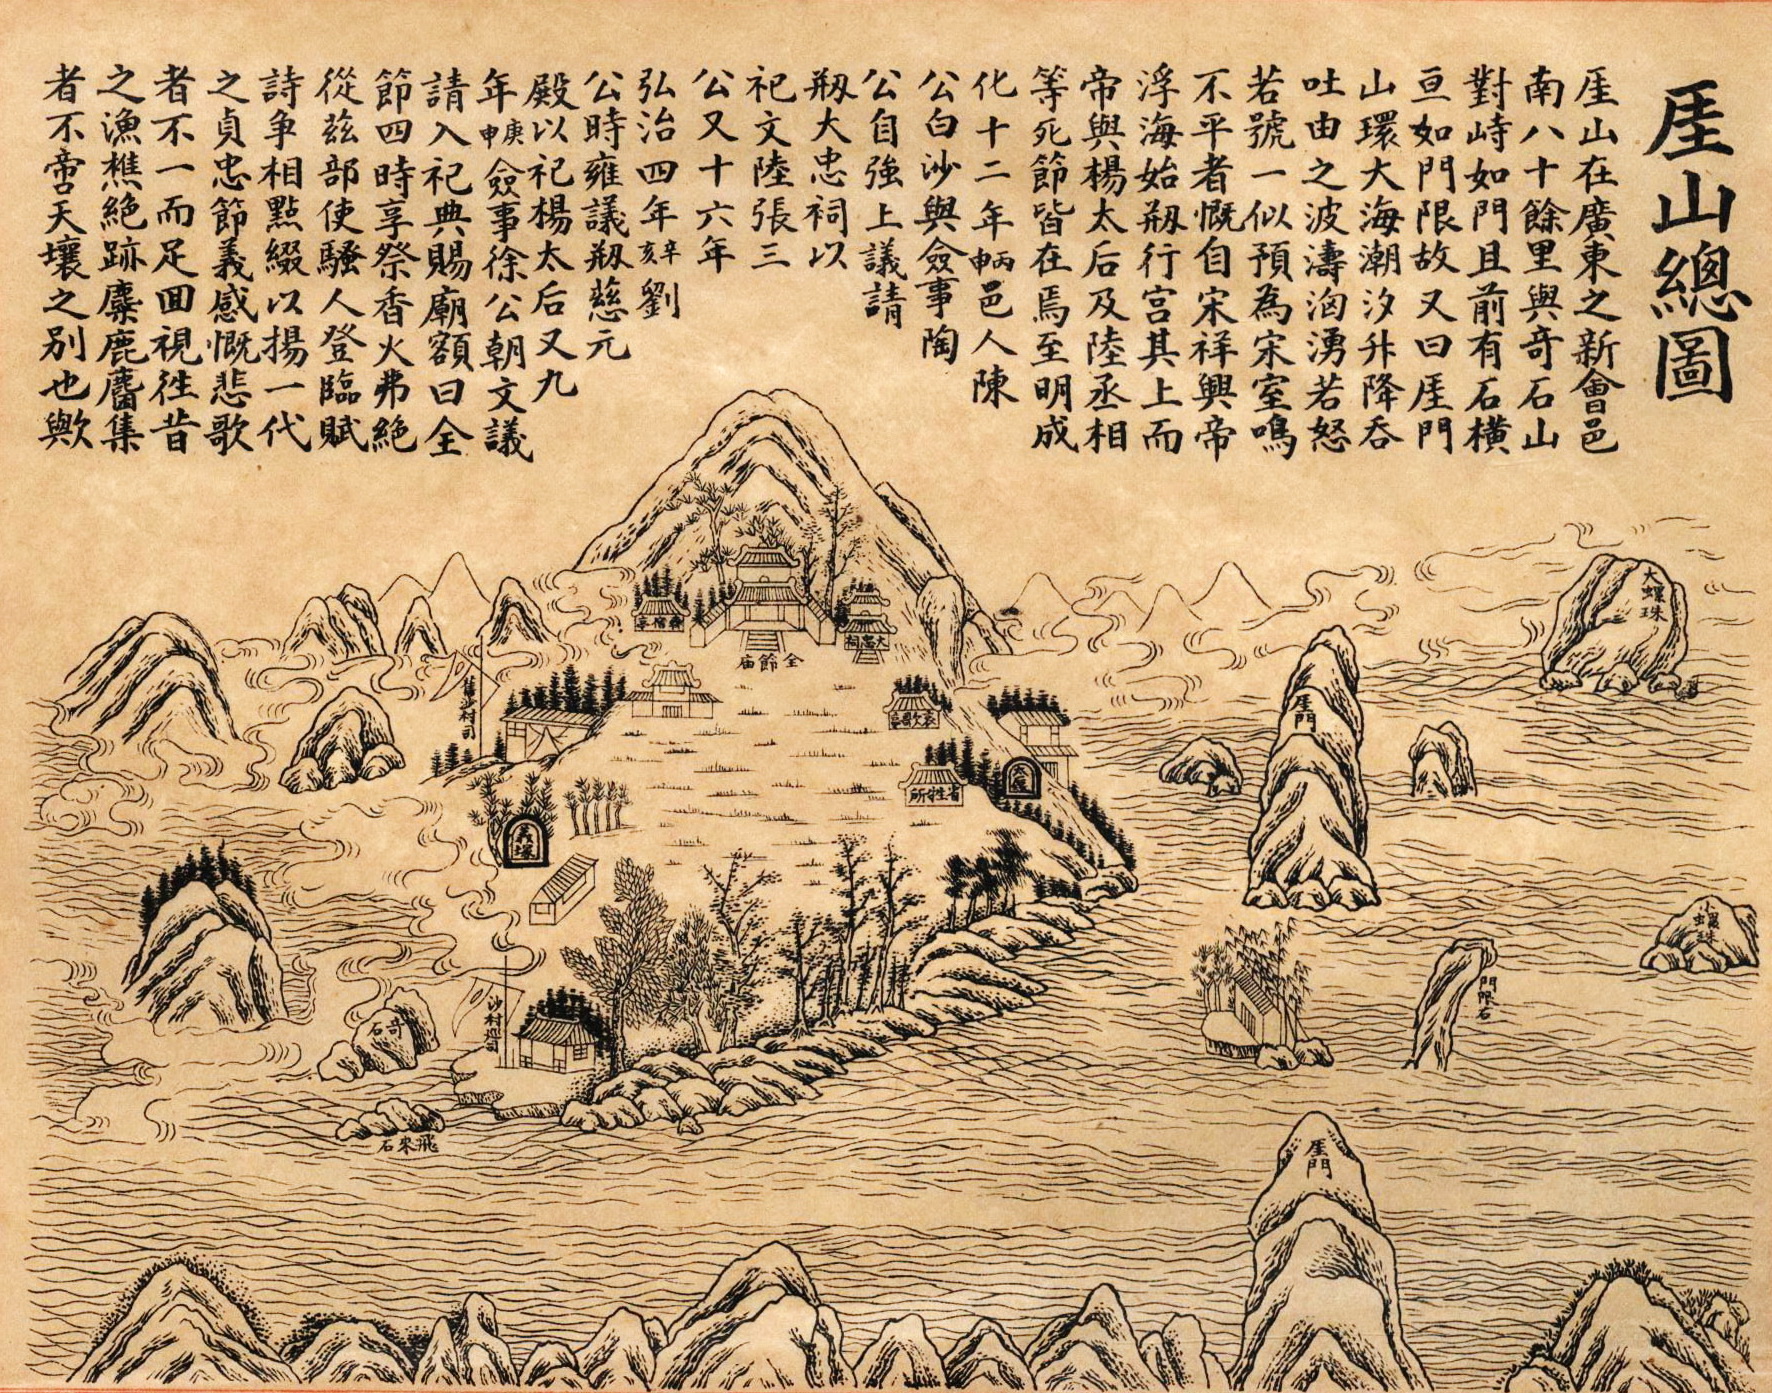 厓山總圖
厓山在廣東之新會邑
南八十餘里與奇石山
對峙如門且前有石橫
亘如門限故又曰厓門
山環大海潮汐升降吞
吐由之波濤洶湧若怒
若號一似預為宋室鳴
不平者慨自宋祥興帝
浮海始剏行宮其上而
帝與楊太后及陸丞相
等死節皆在焉至明成
化十二年丙申邑人陳
公白沙與僉事陶
公自強上議請
剏大忠祠以
祀文陸張三
公又十六年
弘治四年辛亥劉
公時雍議剏慈元
殿以祀楊太后又九
年庚申僉事徐公朝文議
請入祀典賜廟額曰全
節四時享祭香火弗絕
從茲部使騷人登臨賦
詩爭相點綴以揚一代
之貞忠節義感慨悲歌
者不一而足回視徃昔
之漁樵絕跡麋鹿麕集
者不啻天壤之別也歟
大螺珠
厓門
小螺珠
門限石
厓門
全節廟
大忠祠
哀歌亭
省牲所
義塚
沙村巡司
奇石
飛來石